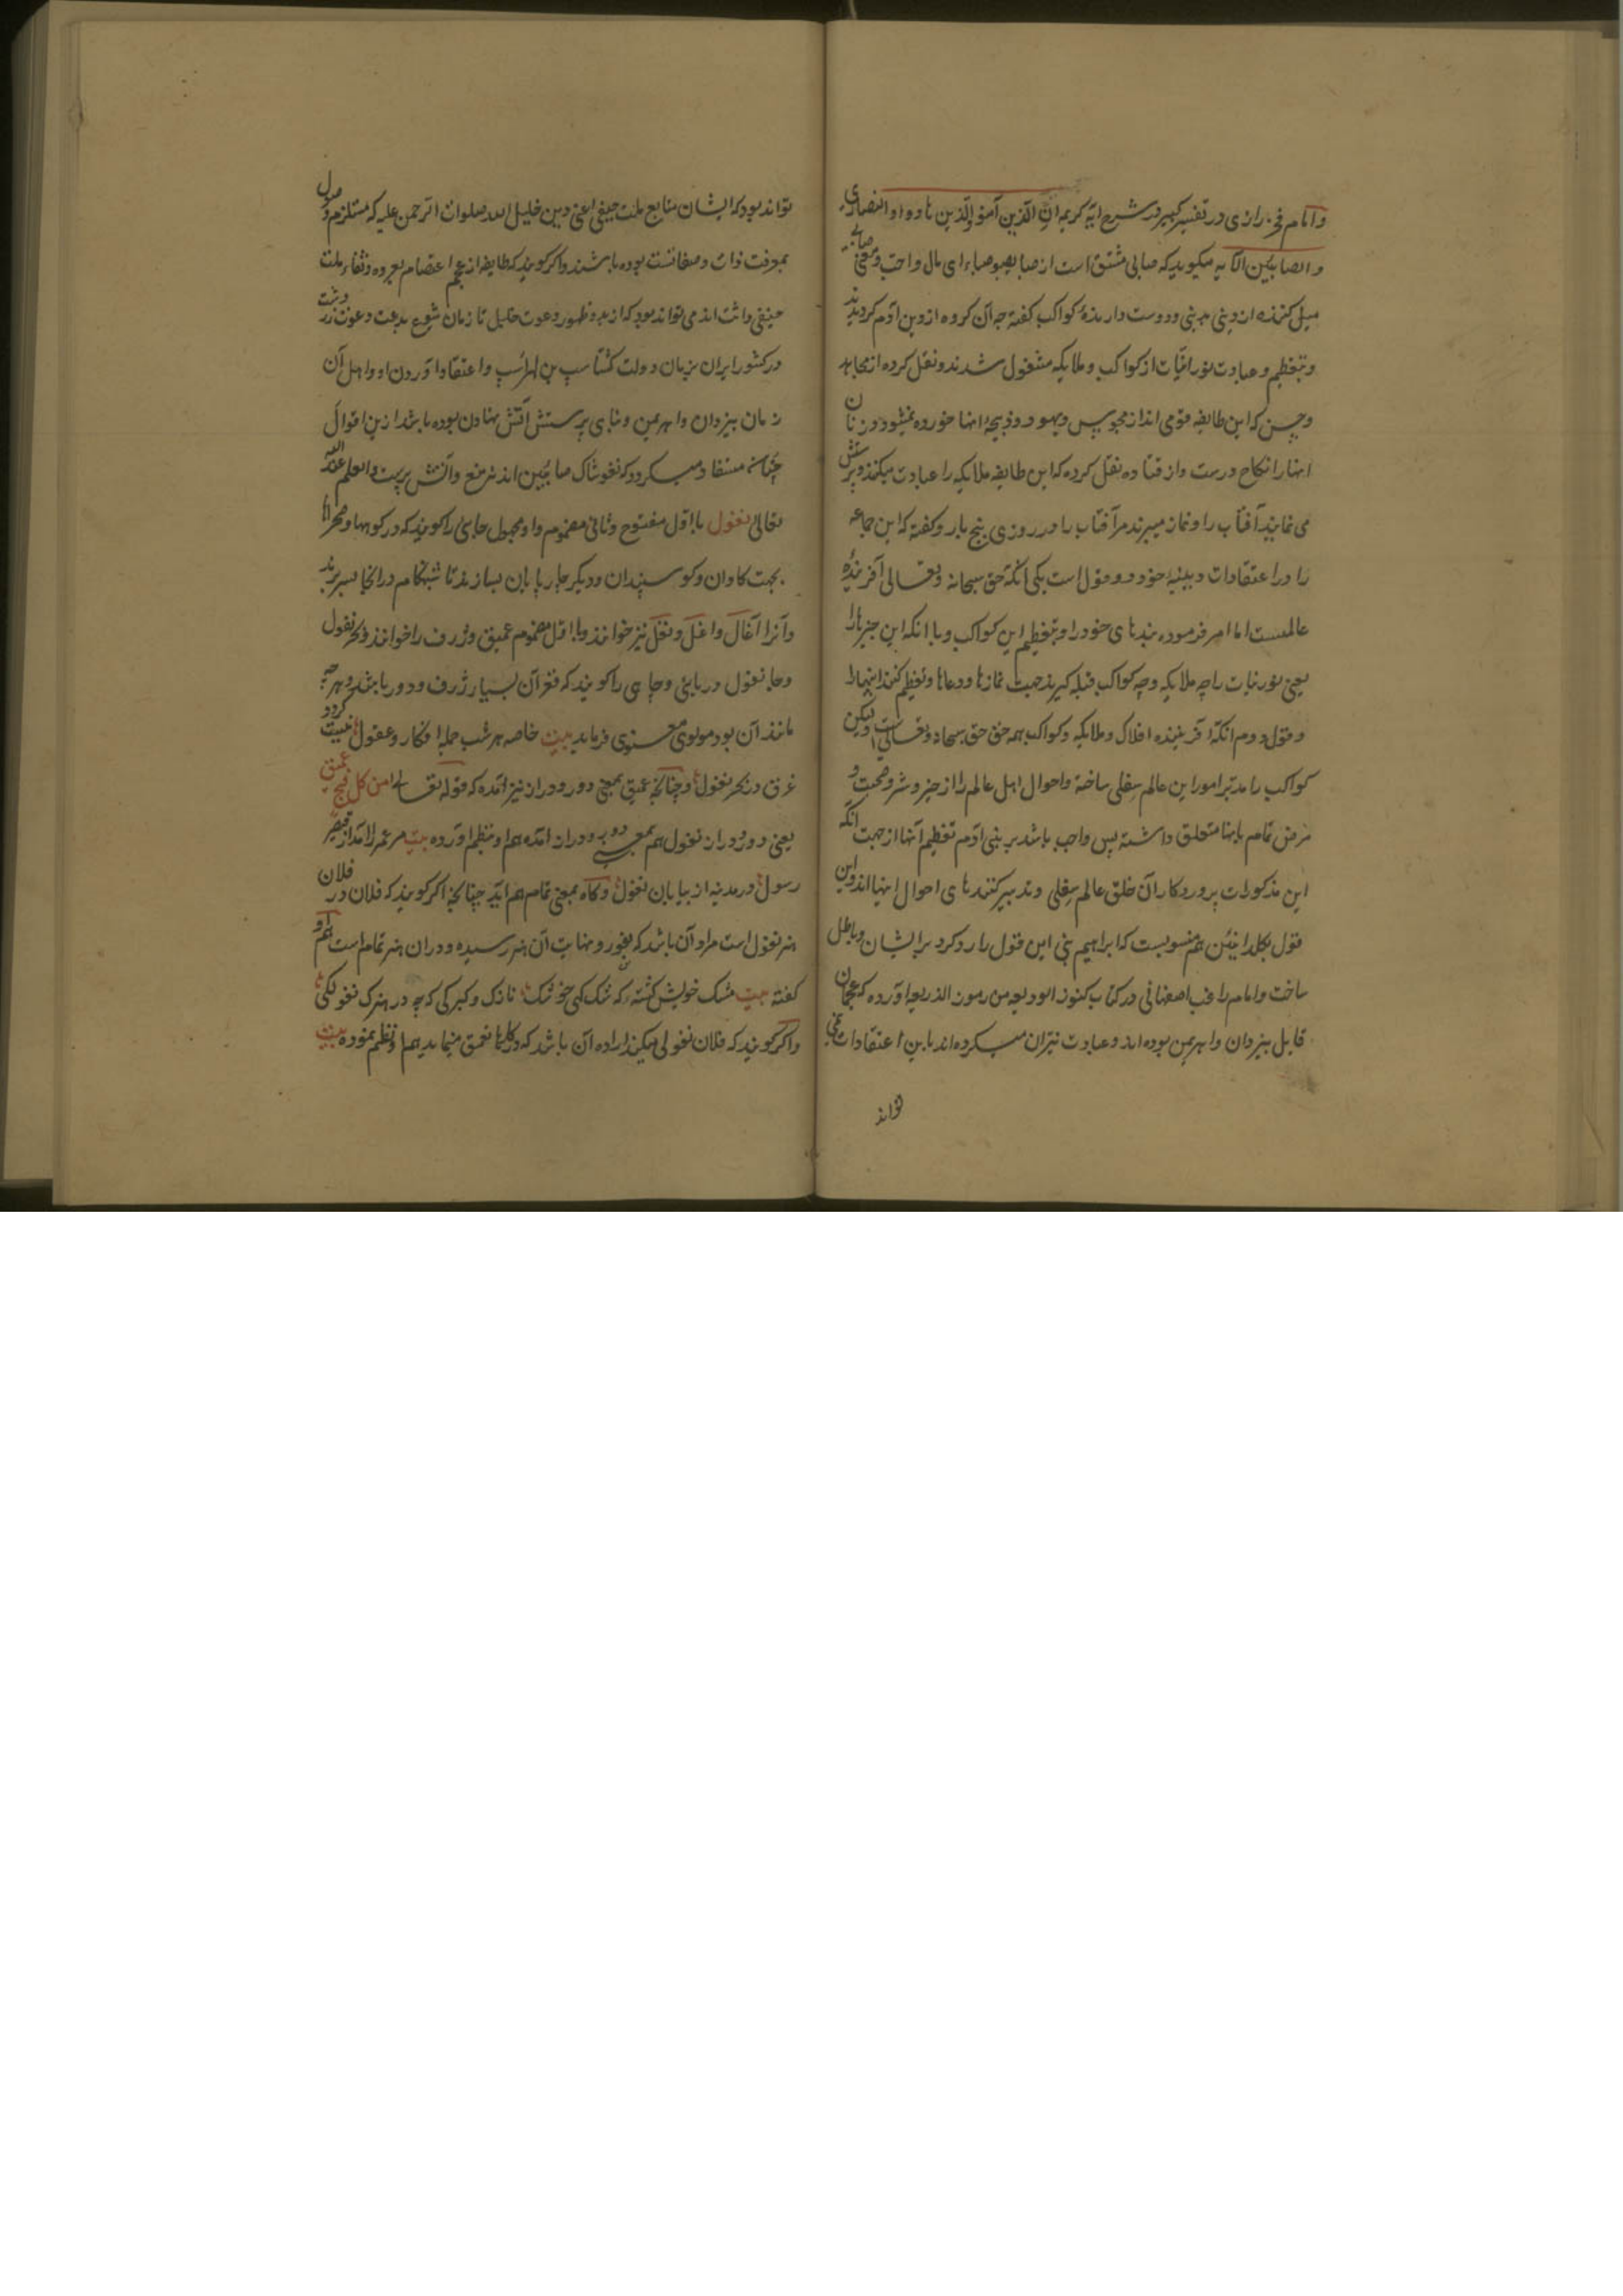 وامام فخر رازی در تفسیر کبیر در شرح ایه کریمه ان الذین آمنو والذین هادوا و النصاری
و الصابئین الآیه میگوید که صابی مشتق است از صبا یصبو صباء ای مال و احب و معنی صابی
میل کننده از دینی بدینی و دوست دارندهٔ کواکب گفته چه آن کروه از دین آدم کردیدند
و بتعظیم و عبادت نورانیات از کواکب و ملایکه مشغول شدند و نقل کرده از مجاهد
و حسن که این طایفه قومی اند از مجوس و یهود و ذبیحه اینها خورده نمیشود و زنان
اینها را نکاح درست و از قتاده نقل کرده که این طایفه ملایکه را عبادت میکنند و پرستش
می نمایند آفتاب را و نماز میبرند مر آفتاب را در روزی پنج بار و کفته که این جماعه
را در اعتقادات دینیه خود دو قول است یکی انکه حق سبحانه و تعالی آفرینندهٔ
عالمست اما امر فرموده بندهای خود را بتعظیم این کواکب و با انکه این چیزها را
یعنی نورنیات را چه ملایکه و چه کواکب قبله کیرند جهت نمازها و دعاها و تعظیم کنند اینها را
و قول دوم انکه آفریننده افلاک و ملایکه و کواکب همه حق حق سبحانه و تعالی است ولیکن
کواکب را مدبر امور این عالم سفلی ساخته و احوال اهل عالم را از خیر و شر و صحت و
مرض تمام باینها متعلق داشته پس واجب باشد بر بنی ادم تعظیم آنها از جهت آنکه
این مذکورات پروردکاران خلق عالم سفلی و تدبیر کنندهای احوال اینها اند و این
قول بکلدانیین هم منسوبست که ابراهیم نبی این قول را رد کرد بر ایشان و باطل
ساخت و امام راغب اصفهانی در کتاب کنوز الودیعه من رموز الذریعه آورده که عجمان
قایل بیزدان و اهرمن بوده اند و عبادت نیران میکرده اند باین اعتقادات نمی
تواند
تواند بود که ایشان متابع ملت حنیفی اعنی دین خلیل الله صلوات الرحمن علیه که مستلزم وصول
بمعرفت ذات و صفاتست بوده باشند و اکر کویند که طایفه از عجم اعتصام بعروه وثقاء ملت
حنیفی داشته اند می تواند بود که از بدو ظهور دعوت خلیل تا زمان شیوع بدعت دعوت زردشت
در کشور ایران بزمان دولت کشتاسپ بن لهراسپ و اعتقاد آوردن او و اهل آن
زمان بیزدان و اهرمن و بنای پرستش آتش نهادن بوده باشد ازین اقوال
چنان مستفاد میکردد که نغوشاک صابئین اند نه مغ و آتش پرست والعلم عند الله
تعالی نغول با اول مفتوح و ثانی مضموم و واو مجهول جائی را کویند که در کوهها و صحراها
بجهت کاوان و کوسپندان و دیکر چارپایان بسازند تا شبهنکام در انجا بسر برند
و آنرا آغال و اغل و نغل نیز خوانند و با اول مضموم عمیق و ژرف را خوانند و بحر نغول
و چاه نغول دریائی و چاهی را کویند که قعر آن بسیار ژرف و دور باشد و هرچه
مانند آن بود مولوی معنوی فرماید بیت خاصه هر شب جمله افکار و عقول نیست کردد
غرق در بحر نغول و چنانچه عمیق بمعنی دور و دراز نیز آمده که قوله تعالی من کل فج عمیق
یعنی دور و دراز نغول هم بمعنی دور و دراز آمده هم او بنظم اورده بیت مر عمر را آمد از قیصر
رسول در مدینه از بیابان نغول و کاه بمعنی تمام هم اید چنانچه اکر کویند که فلان در فلان
هنر نغول است مراد آن باشد که بغور و نهایت آن هنر رسیده و در ان هنر تمام است هم او
کفته بیت
واکر کویند که فلان نغولی میکند اراده آن باشد که در کارها تعمق مینماید هم او نظم نموده بیت